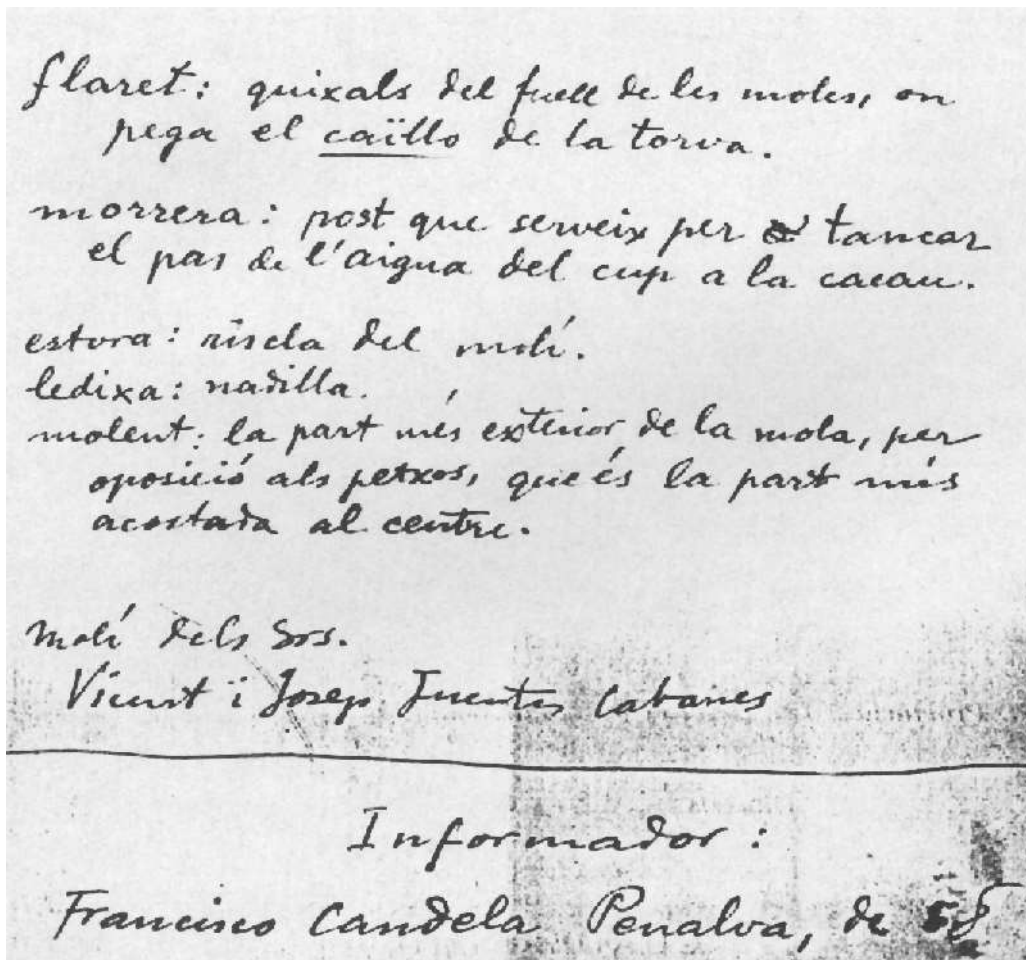 flaret: quixals del fuell de les moles, on
pega el caïllo de la torva.
morrera: post que serveix per tancar
el pas de l'aigua del cup a la cacau.
estora: riscla del molí.
ledixa: nadilla.
molent: la part més exterior, de la mola, per
oposició als petxos, que és la part més
acostada al centre.
Molí dels Srs.
Vicent i Josep Fuentes Cabanes
Informador:
Francisco Candela Penalva, de 58